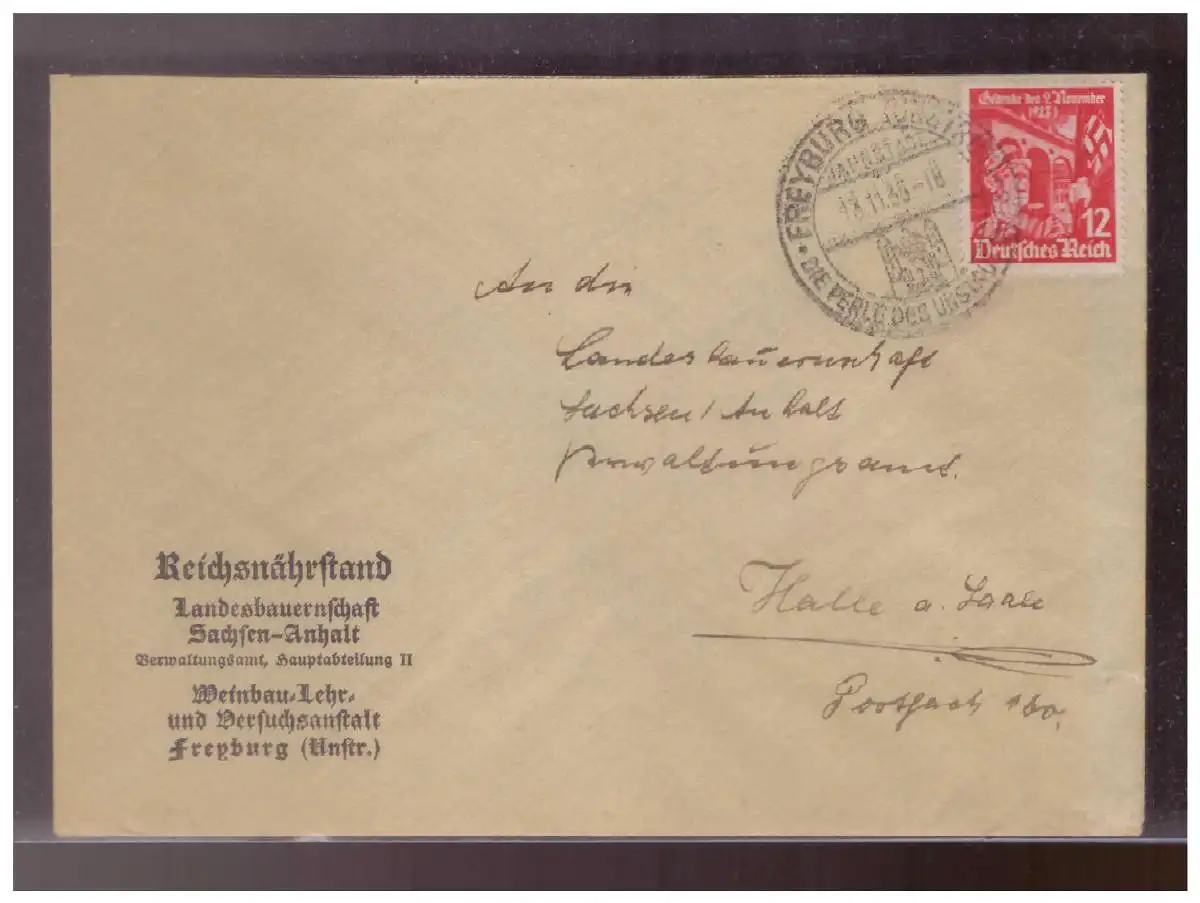 Gedenke des 9. November
1923
12
Deutsches Reich
FREYBURG
JAHNSTADT
13.11.35-18
DIE PERLE DES UNSTRUT
An die
Landesbauernschaft
Sachsen/Anhalt
Verwaltungsamt.
Halle a. Saale
Postfach 160.
Reichsnährstand
Landesbauernschaft
Sachsen-Anhalt
Verwaltungsamt, Hauptabteilung II
Weinbau-Lehr-
und Versuchsanstalt
Freyburg (Unstr.)